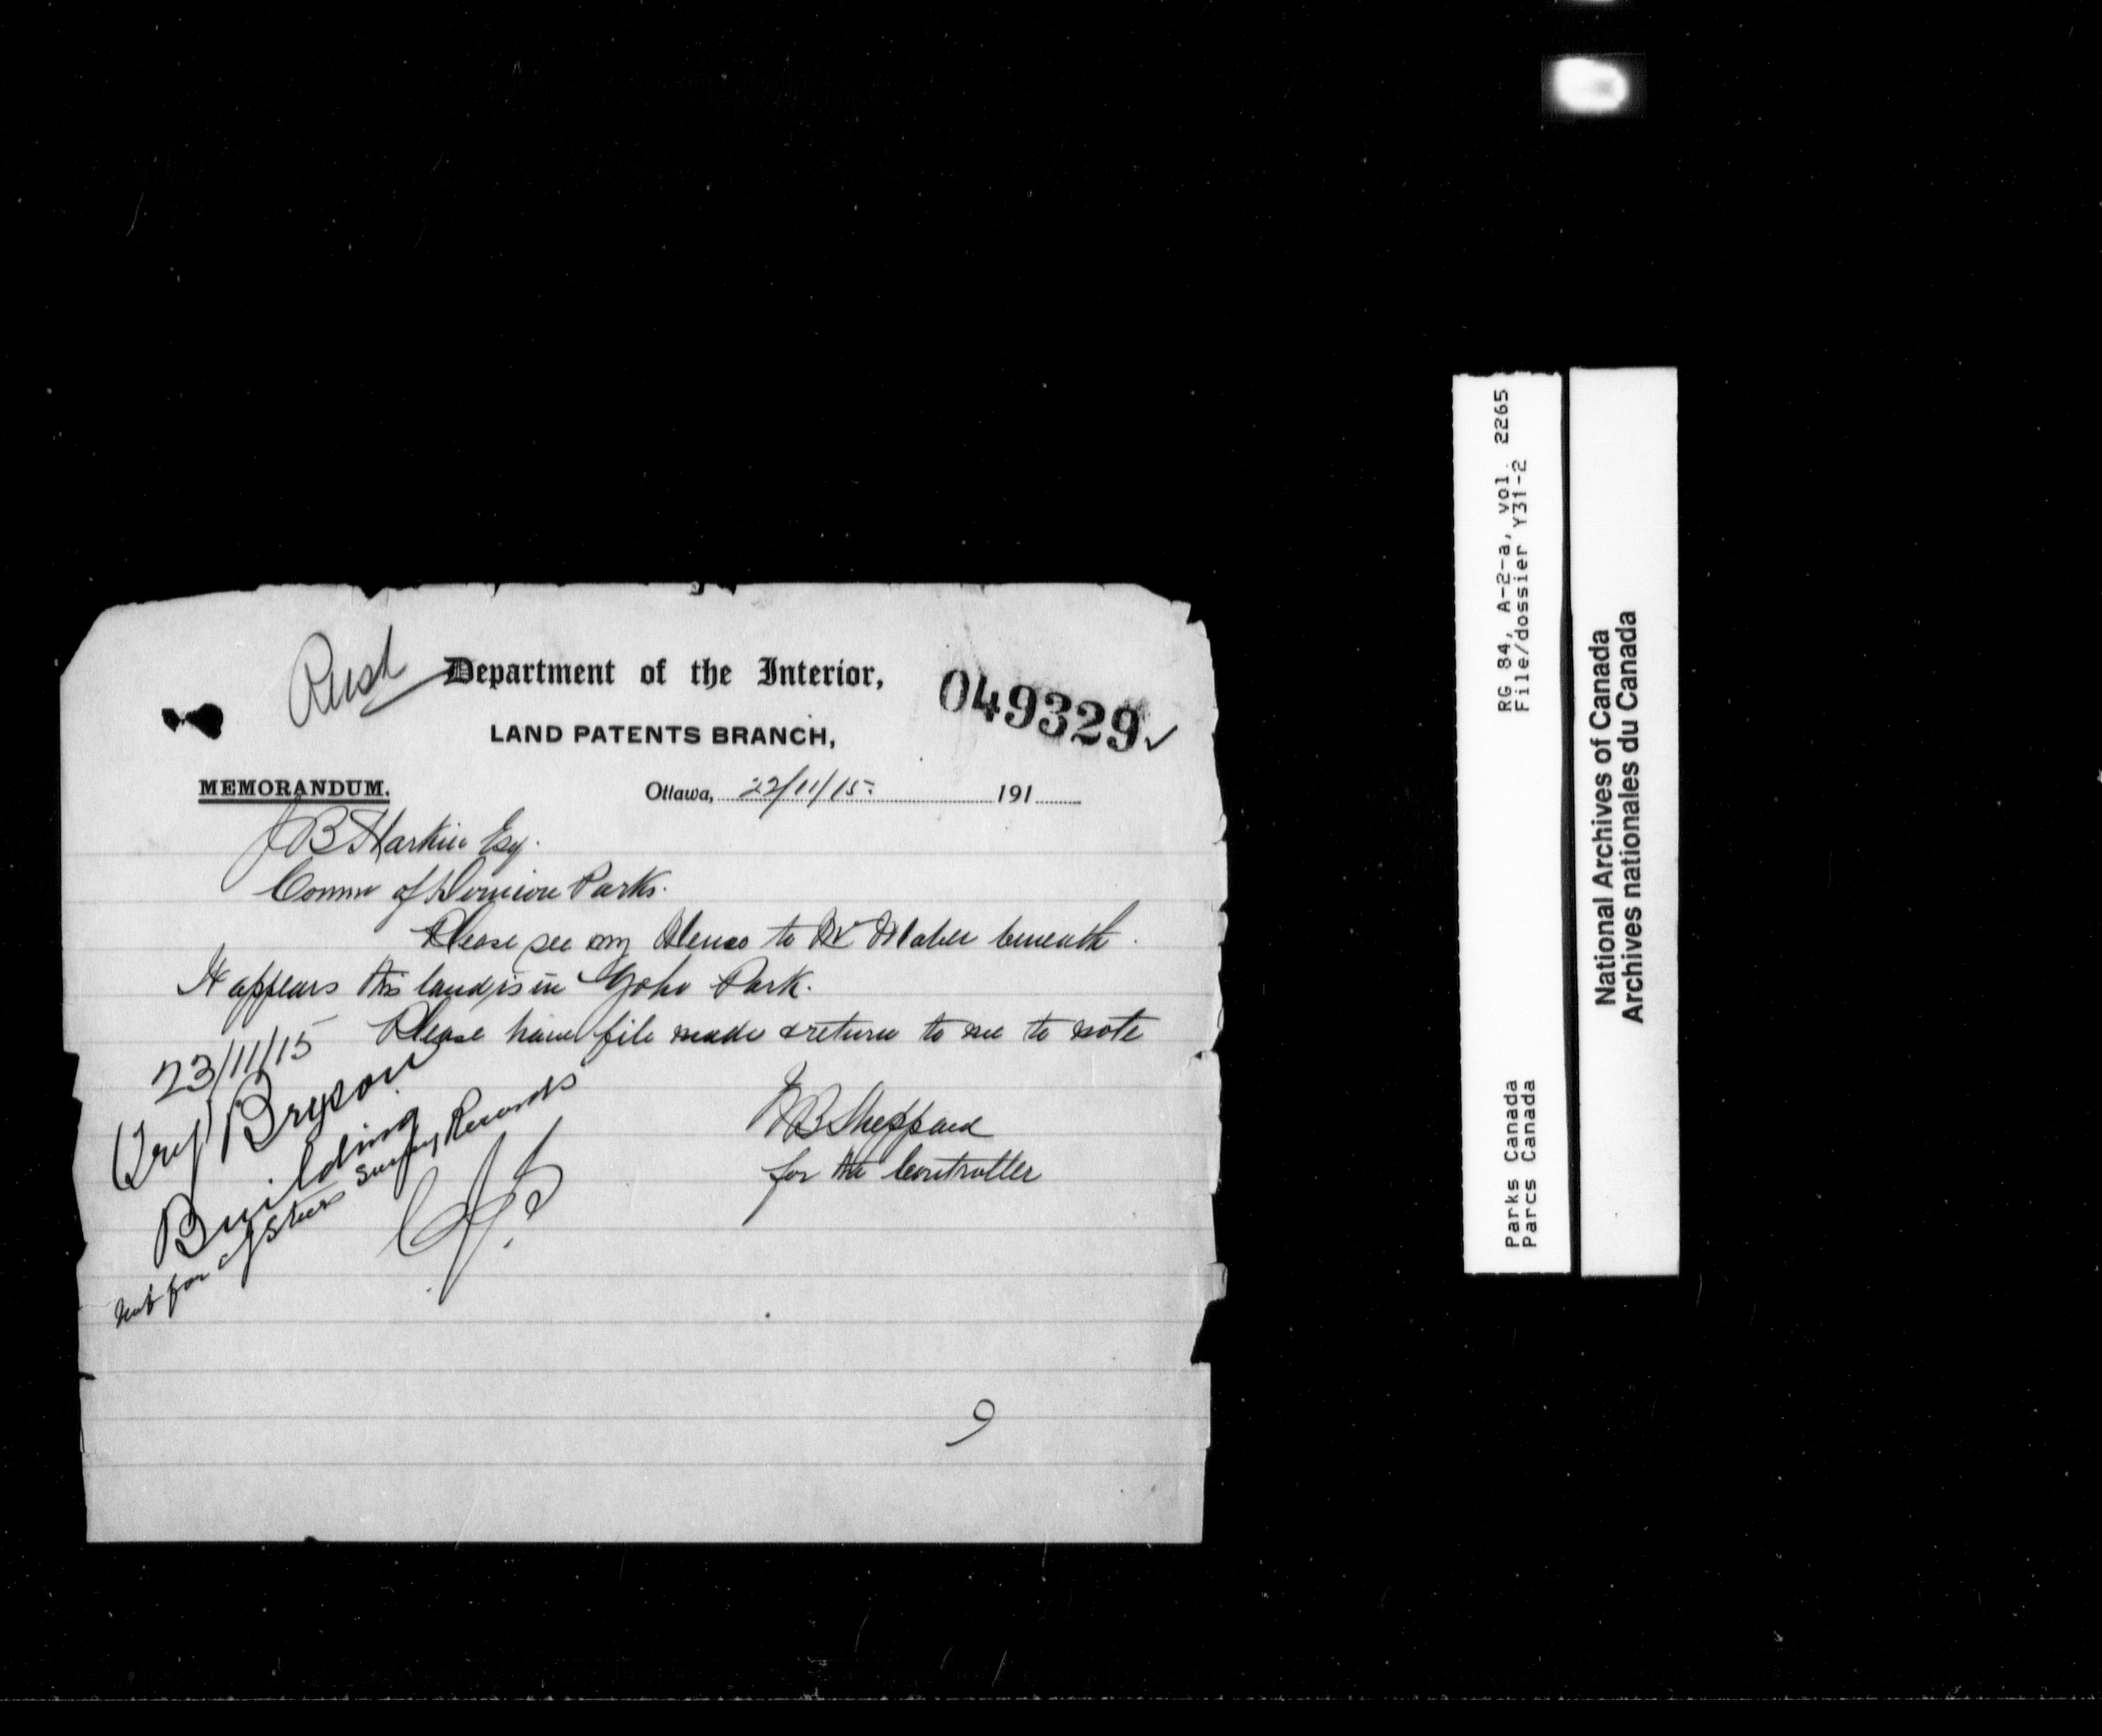 Rush
Department of the Interior,
049329 ✓
LAND PATENTS BRANCH,
MEMORANDUM.
Ottawa, 22/11/15. 191
J B Harkin Esq.
Commr of Dominion Parks.
Please see my Memo to Mr Maber beneath.
It appears this land is in Yoho Park.
Please have file made & return to me to note
23/11/15
Bryson
Building
Survey Records
B Sheppard
for the Controller
9
RG 84, A-2-a, vol. 2265
File/dossier Y31-2
Parks Canada
Parcs Canada
National Archives of Canada
Archives nationales du Canada